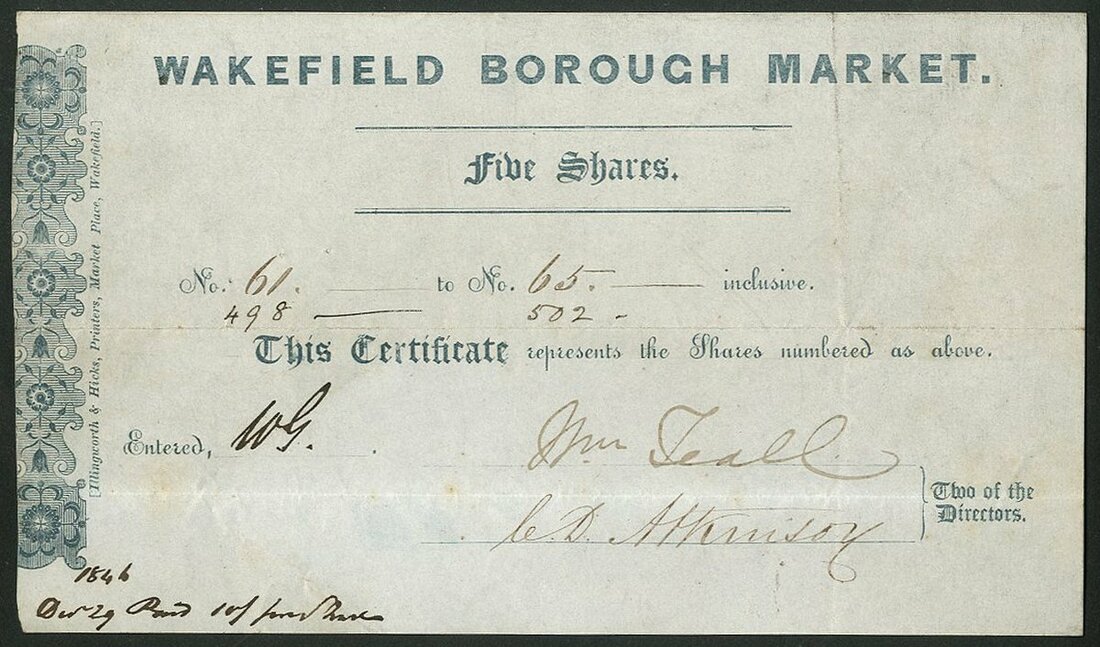 WAKEFIELD BOROUGH MARKET.
Five Shares.
No. 61. to No. 65. inclusive.
498 502
This Certificate represents the Shares numbered as above.
Entered, WG.
Wm Teall
C.D. Atkinson
Two of the
Directors.
[Illingworth & Hicks, Printers, Market Place, Wakefield.]
1846
Dec 29 Paid 10/